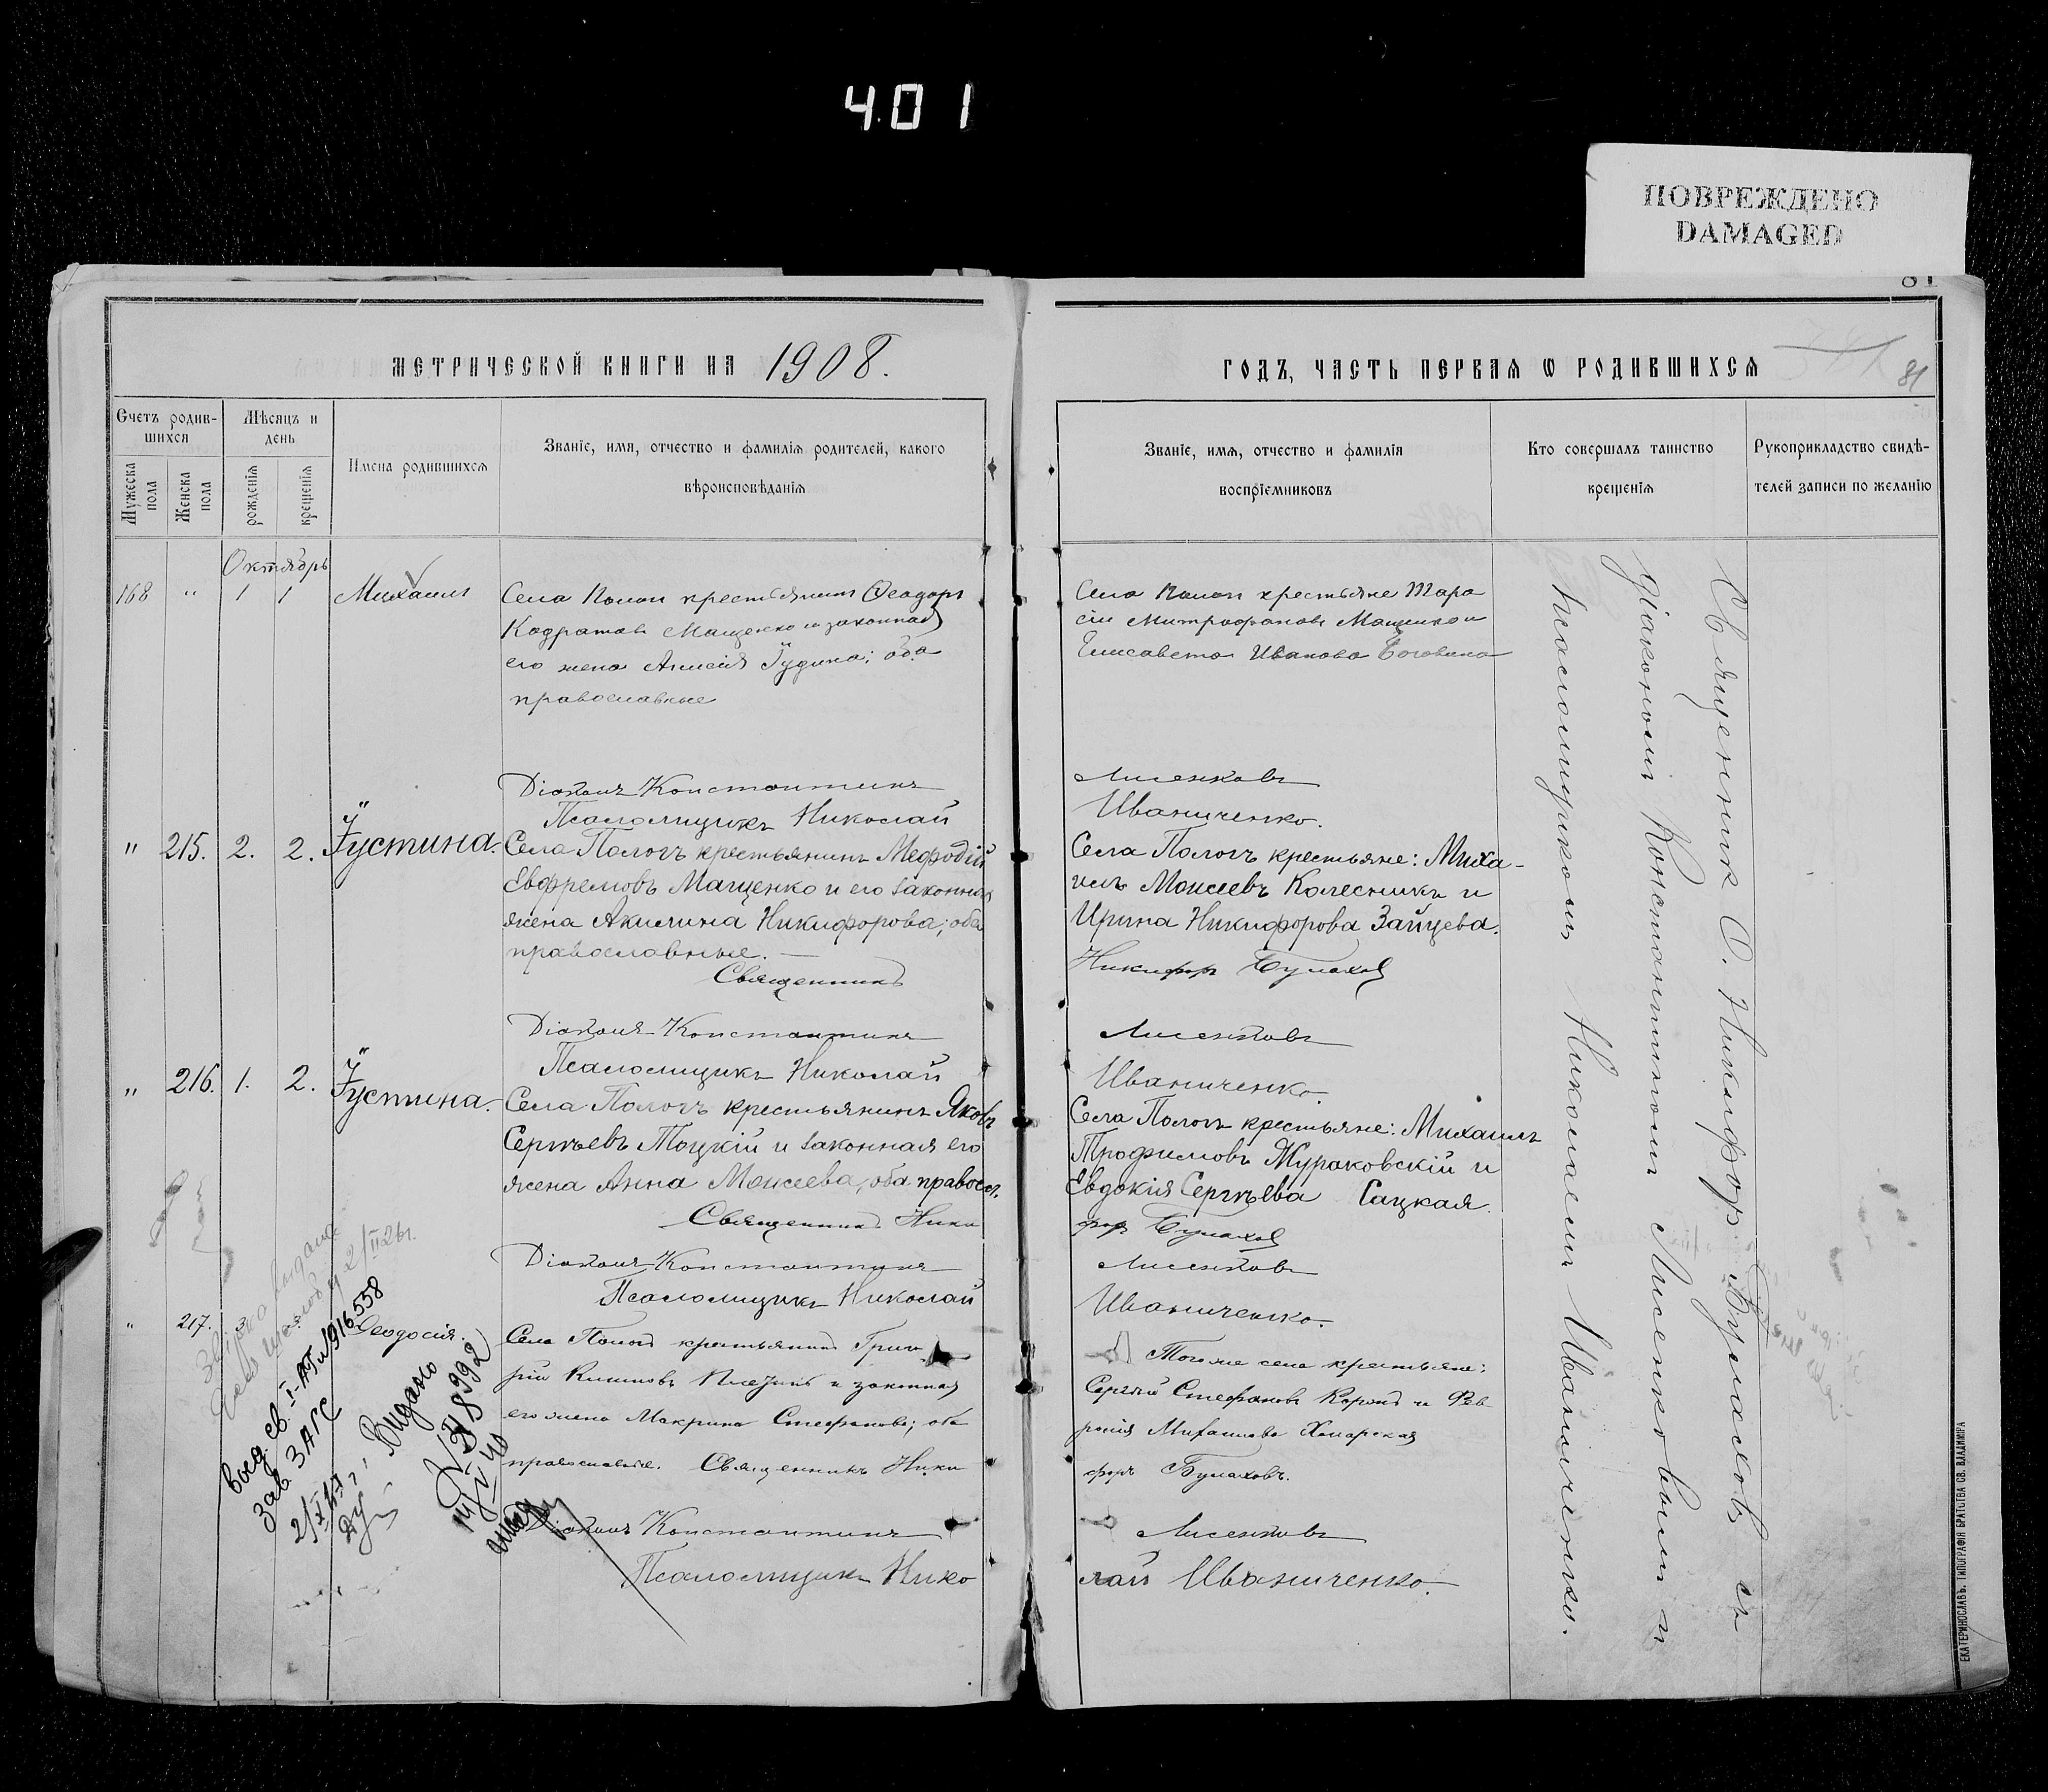 401
ПОВРЕЖДЕНО
DAMAGED
81
МЕТРИЧЕСКОЙ КНИГИ НА 1908.
Счетъ родив-
шихся
Мужеска
пола
Женска
пола
Мѣсяцъ и
день
рожденія
крещенія
Имена родившихся
Званіе, имя, отчество и фамилія родителей, какого
вѣроисповѣданія
Октябрь
168 " 1 1 Михаилъ
Села Пологъ крестьянинъ Ѳеодоръ
Кодратовъ Мащенко и законная
его жена Анисія Іудина; оба
православные
Діаконъ Константинъ
Псаломщикъ Николай
" 215. 2. 2. Іустина.
Села Пологъ крестьянинъ Мефодій
Евфремовъ Мащенко и его законная
жена Акилина Никифорова; оба
православные.
Священникъ
Діаконъ Константинъ
Псаломщикъ Николай
" 216. 1. 2. Іустина.
Села Пологъ крестьянинъ Яковъ
Сергѣевъ Тоцкій и законная его
жена Анна Моисеева, оба правосл.
Священникъ Ники
Діаконъ Константинъ
Псаломщикъ Николай
" 217. 3. Ѳеодосія.
Села Пологъ крестьянинъ Григо
рій Климовъ и законная
его жена Макрина Стефанова; оба
православные. Священникъ Ники
Діаконъ Константинъ
Псаломщикъ Нико
2/II 26г.
Выд. св. I-АП №916558
Зав. ЗАГС
Видано
8392
ГОДЪ, ЧАСТЬ ПЕРВАЯ Ѡ РОДИВШИХСЯ
81
Званіе, имя, отчество и фамилія
воспріемниковъ
Кто совершалъ таинство
крещенія
Рукоприкладство свидѣ-
телей записи по желанію
Села Пологъ крестьяне Тара
сій Митрофановъ Мащенко и
Елисавета Иванова Боговина
Лисенковъ
Иваниченко.
Села Пологъ крестьяне: Миха-
илъ Моисеевъ Колесникъ и
Ирина Никифорова Зайцева.
Никифоръ Булаховъ
Лисенковъ
Иваниченко.
Села Пологъ крестьяне: Михаилъ
Трофимовъ Жураковскій и
Евдокія Сергѣева Сацкая.
форъ Булаховъ
Лисенковъ
Иваниченко.
Тогоже села крестьяне:
Сергѣй Стефановъ и Фев
ронія Михаилова
форъ Булаховъ.
Лисенковъ
лай Иваниченко.
Священник О. Никифор Булахов съ
діакономъ Константиномъ Лисенковымъ и
псаломщикомъ Николаемъ Иваниченко.
ЕКАТЕРИНОСЛАВЪ, ТИПОГРАФІЯ БРАТСТВА СВ. ВЛАДИМІРА